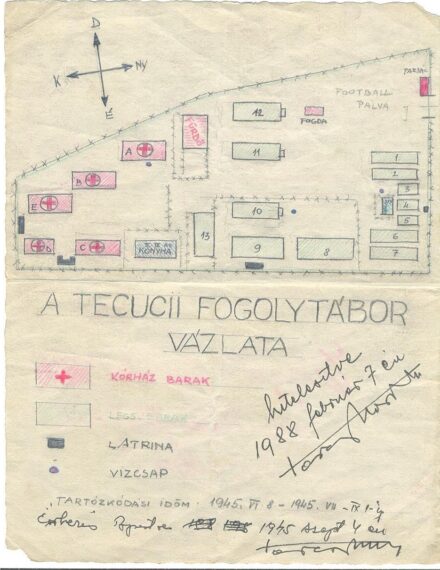 D
K NY
É
PARJAG
FOOTBALL
PÁLYA
12
FOGDA
FÜRDŐ
A
11
1
2
B
3
4
5
E
10
13
6
D
C
KONYHA
9
8
7
A TECUCII FOGOLYTÁBOR
VÁZLATA
KÓRHÁZ BARAK
LEGS. BARAK
LATRINA
VIZCSAP
hitelesítve
1988 február 7 én
TARTÓZKODÁSI IDŐM: 1945. VI 8 - 1945. VIII - IX 1-ig
1945 szept 4 én